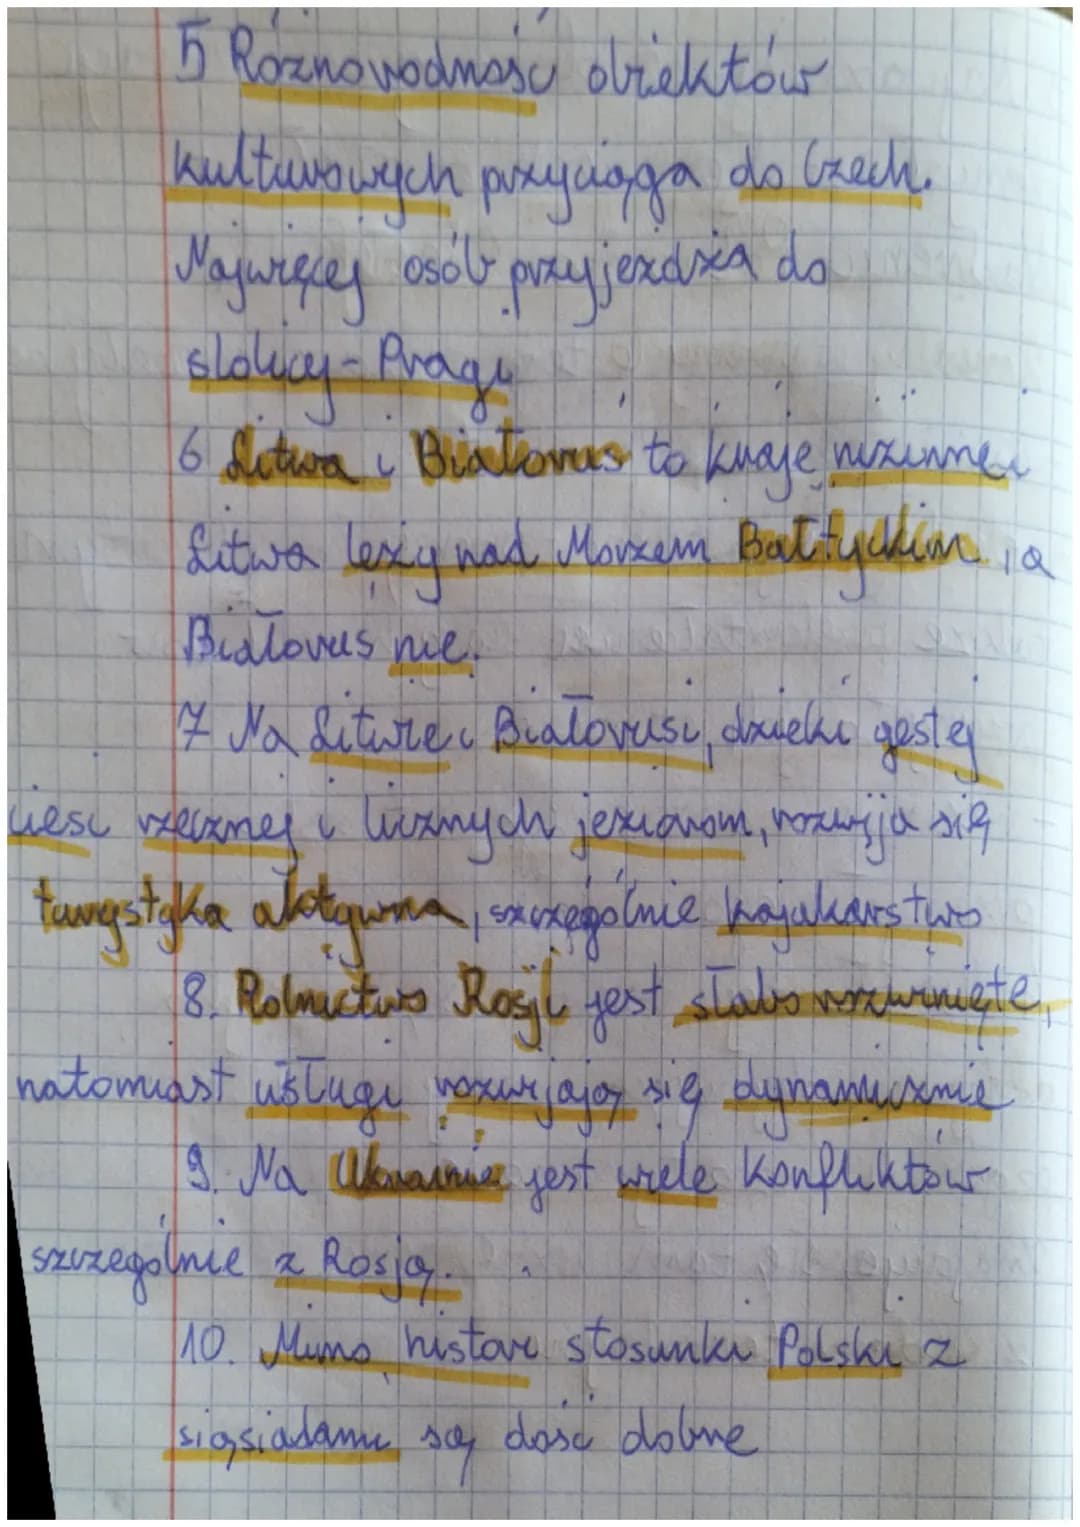 5 Róznorodność obiektów
kulturowych przyciąga do Czech.
Najwięcej osób przyjeżdża do
stolicy - Pragi
6 Litwa i Białoruś to kraje nizinne.
Litwa leży nad Morzem Bałtyckim, a
Białoruś nie.
7 Na Litwie i Białorusi, dzieki gęstej
sieci rzecznej i licznych jeziorom, rozwija się
turystyka aktywna, szczególnie kajakarstwo
8. Rolnictwo Rosji jest słabo rozwinięte,
natomiast usługi rozwijają się dynamicznie
9. Na Ukrainie jest wiele konfliktów
szczególnie z Rosją.
10. Mimo histori stosunki Polski z
sięsiadami są dość dobre